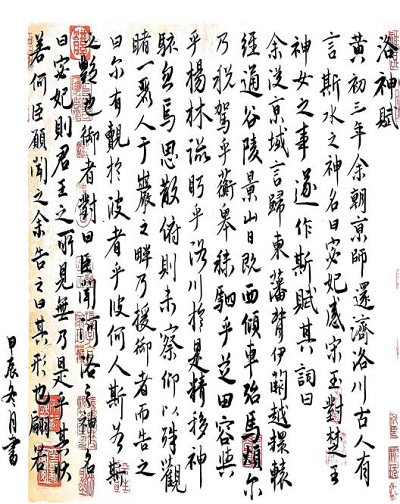 洛神賦
黄初三年余朝京師還濟洛川古人有
言斯水之神名曰宓妃感宋王對楚王
神女之事遂作斯賦其詞曰
余從京域言歸東藩背伊闕越轘轅
經通谷陵景山日既西傾車殆馬煩尔
乃税駕乎蘅皋秣駟乎芝田容與
乎楊林流眄乎洛川於是精移神
駭忽焉思散俯則未察仰以殊觀
睹一麗人于巖之畔乃援御者而告之
曰尔有覿於彼者乎彼何人斯若斯
之艷也御者對曰臣聞河洛之神名
曰宓妃則君王之所見無乃是乎其狀
若何臣願聞之余告之曰其形也翩若
甲辰冬月書